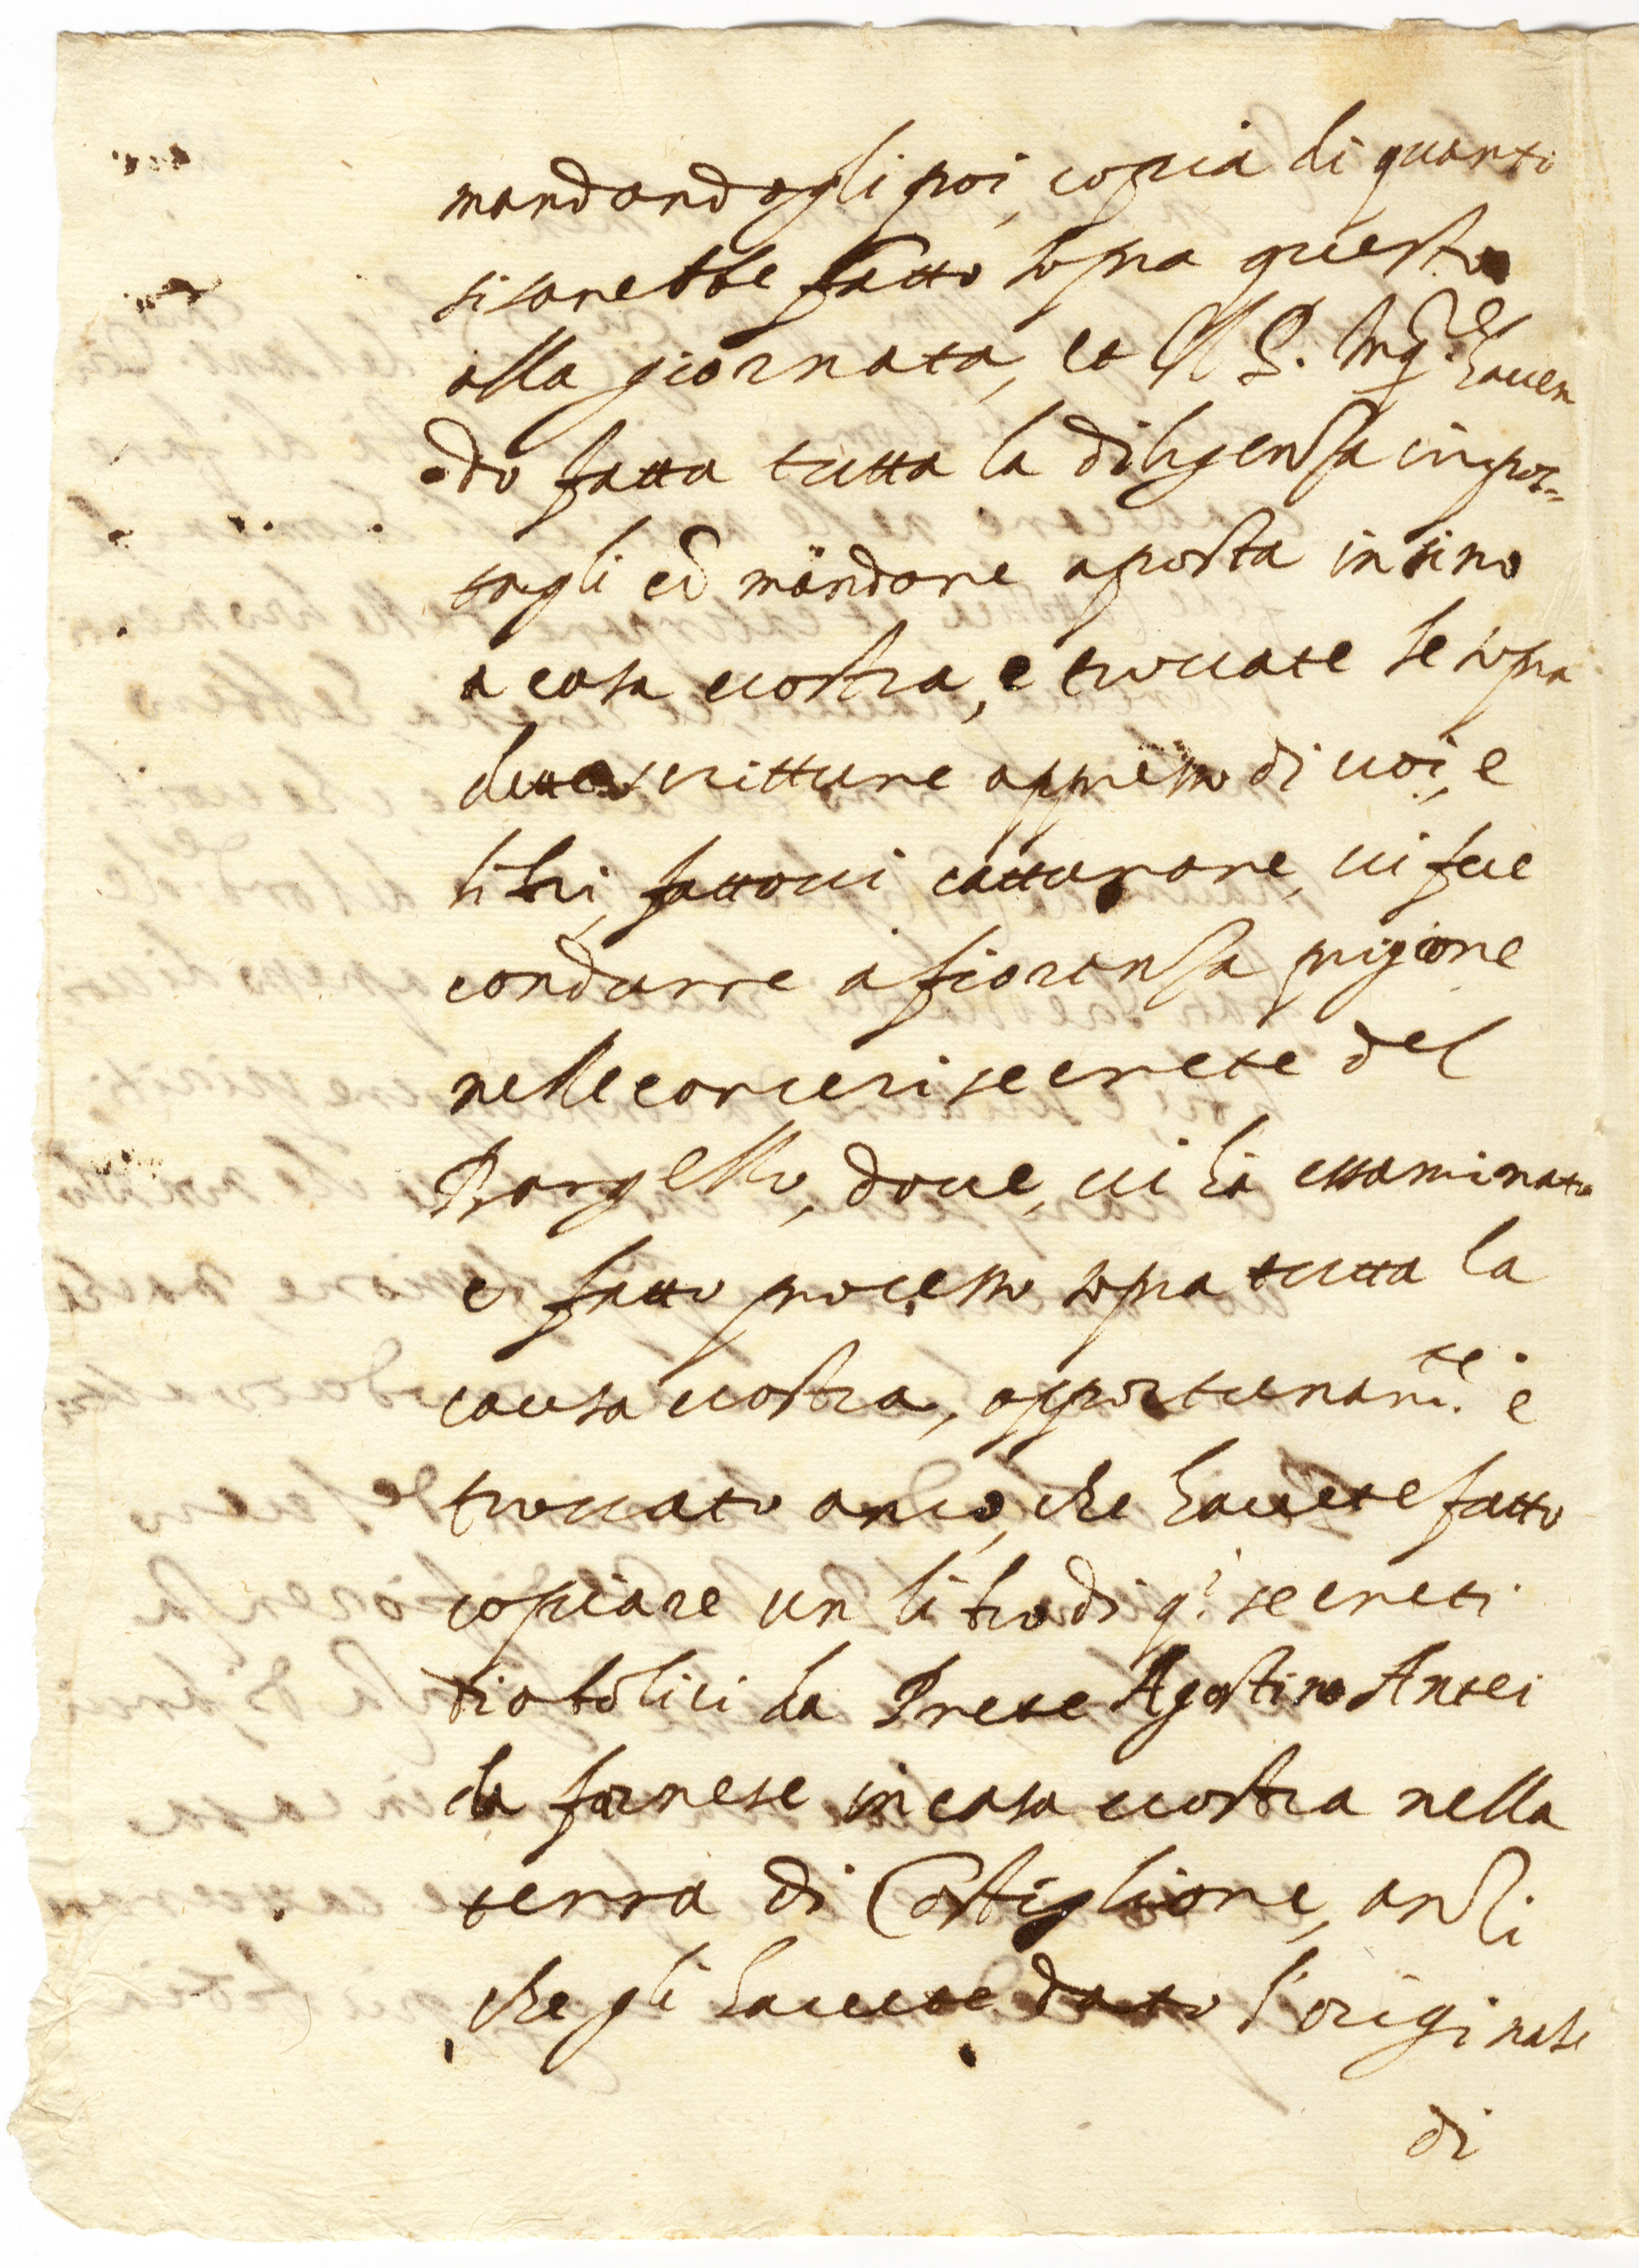 mandandogli poi, copia di quanto
si sarebbe fatto sopra questo
alla giornata, et il P. Inq.re hauen
do fatta tutta la diligenza impos=
tagli ed mandare aposta insino
a casa uostra, e trouate le sopra
dette scritture appresso di uoi, e
libri, fattoui catturare, ui fece
condurre a fiorenza prigione
nelle carceri secrete del
Bargello, doue, ui hà essaminato
e fatto processo sopra tutta la
causa uostra, opportunam.te e
trouato anco, che hauete fatto
copiare un libro di q.i secreti
diabolici da Prete Agostino Antei
da farnese in casa uostra nella
terra di Castiglione, anzi
che gli hauete dato l'originale
di